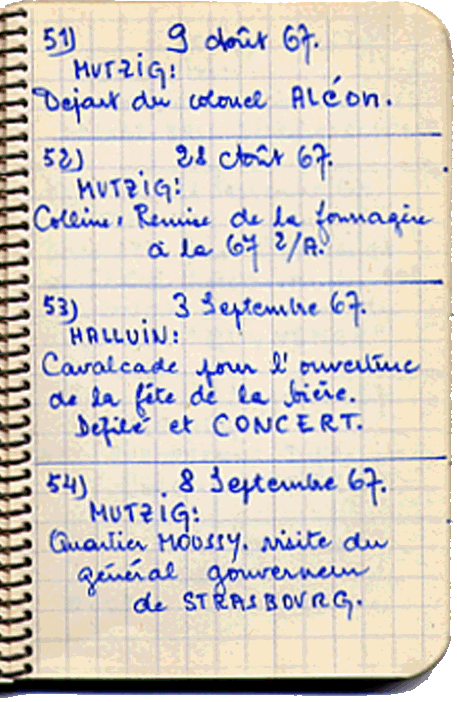 51) 9 Août 67.
MUTZIG:
Départ du colonel ALÉON.
52) 28 Août 67.
MUTZIG:
Colline, Remise de la fourragère
à la 67 2/A.
53) 3 Septembre 67.
HALLUIN:
Cavalcade pour l'ouverture
de la fête de la bière.
Défilé et CONCERT.
54) 8 Septembre 67.
MUTZIG:
Quartier MOUSSY. visite du
général gouverneur
de STRASBOURG.